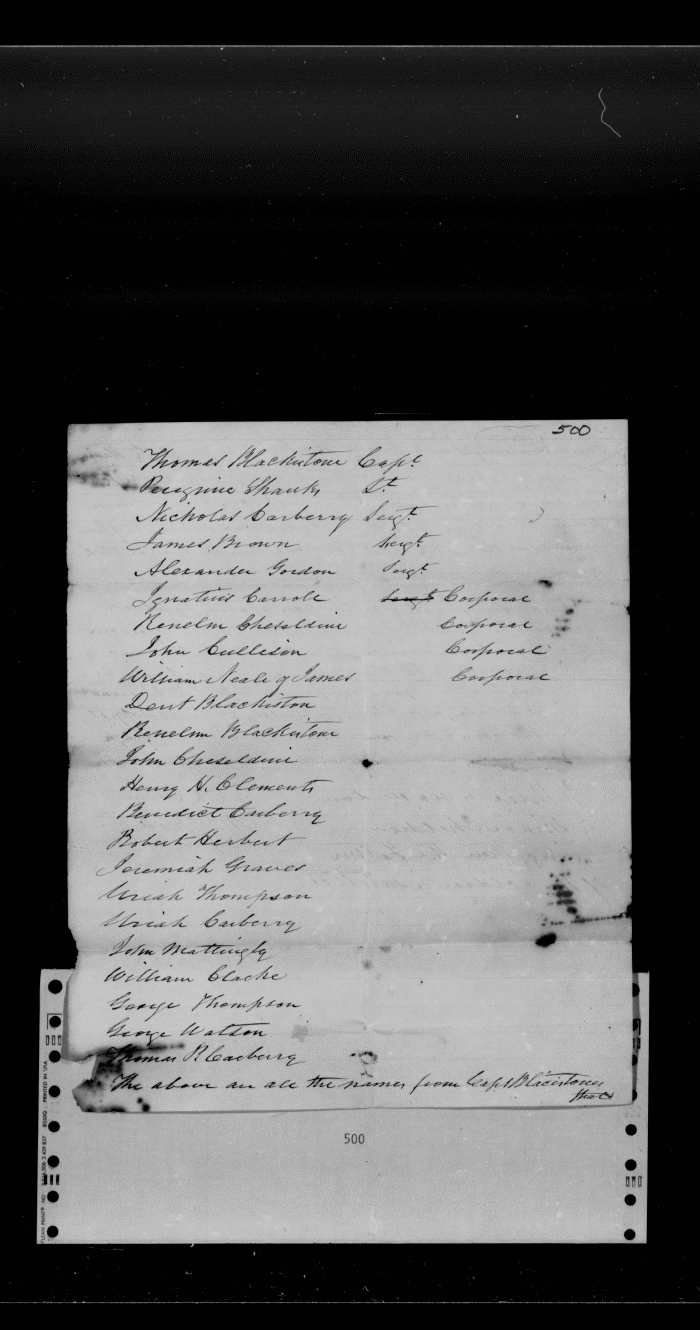 500
Thomas Blackistone Capt
Peregrine Shanks Lt
Nicholas Carberry Sergt
James Brown Sergt
Alexander Gordon Sergt
Ignatius Carrole Sergt Corporal
Kenelm Cheseldine Corporal
John Cullison Corporal
William Neale of James Corporal
Dent Blackiston
Kenelm Blackistone
John Cheseldine
Henry H. Clements
Benedict Carberry
Robert Herbert
Jeremiah Graves
Uriah Thompson
Uriah Carberry
John Mattingly
William Clarke
George Thompson
George Watson
Thomas R Carberry
The above are all the names from Capt Blacistones
500
PRINTED IN USA